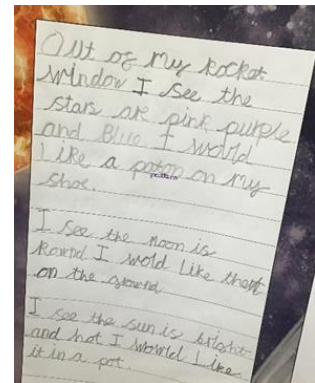 Out of my Rocket
window I see the
stars are pink purple
and Blue I world
Like a patton on my
pattern
shoe.
I see the Moon is
Round I wold Like thent
on the ground
I see the sun is bright
and hot I world Like
it in a pot.